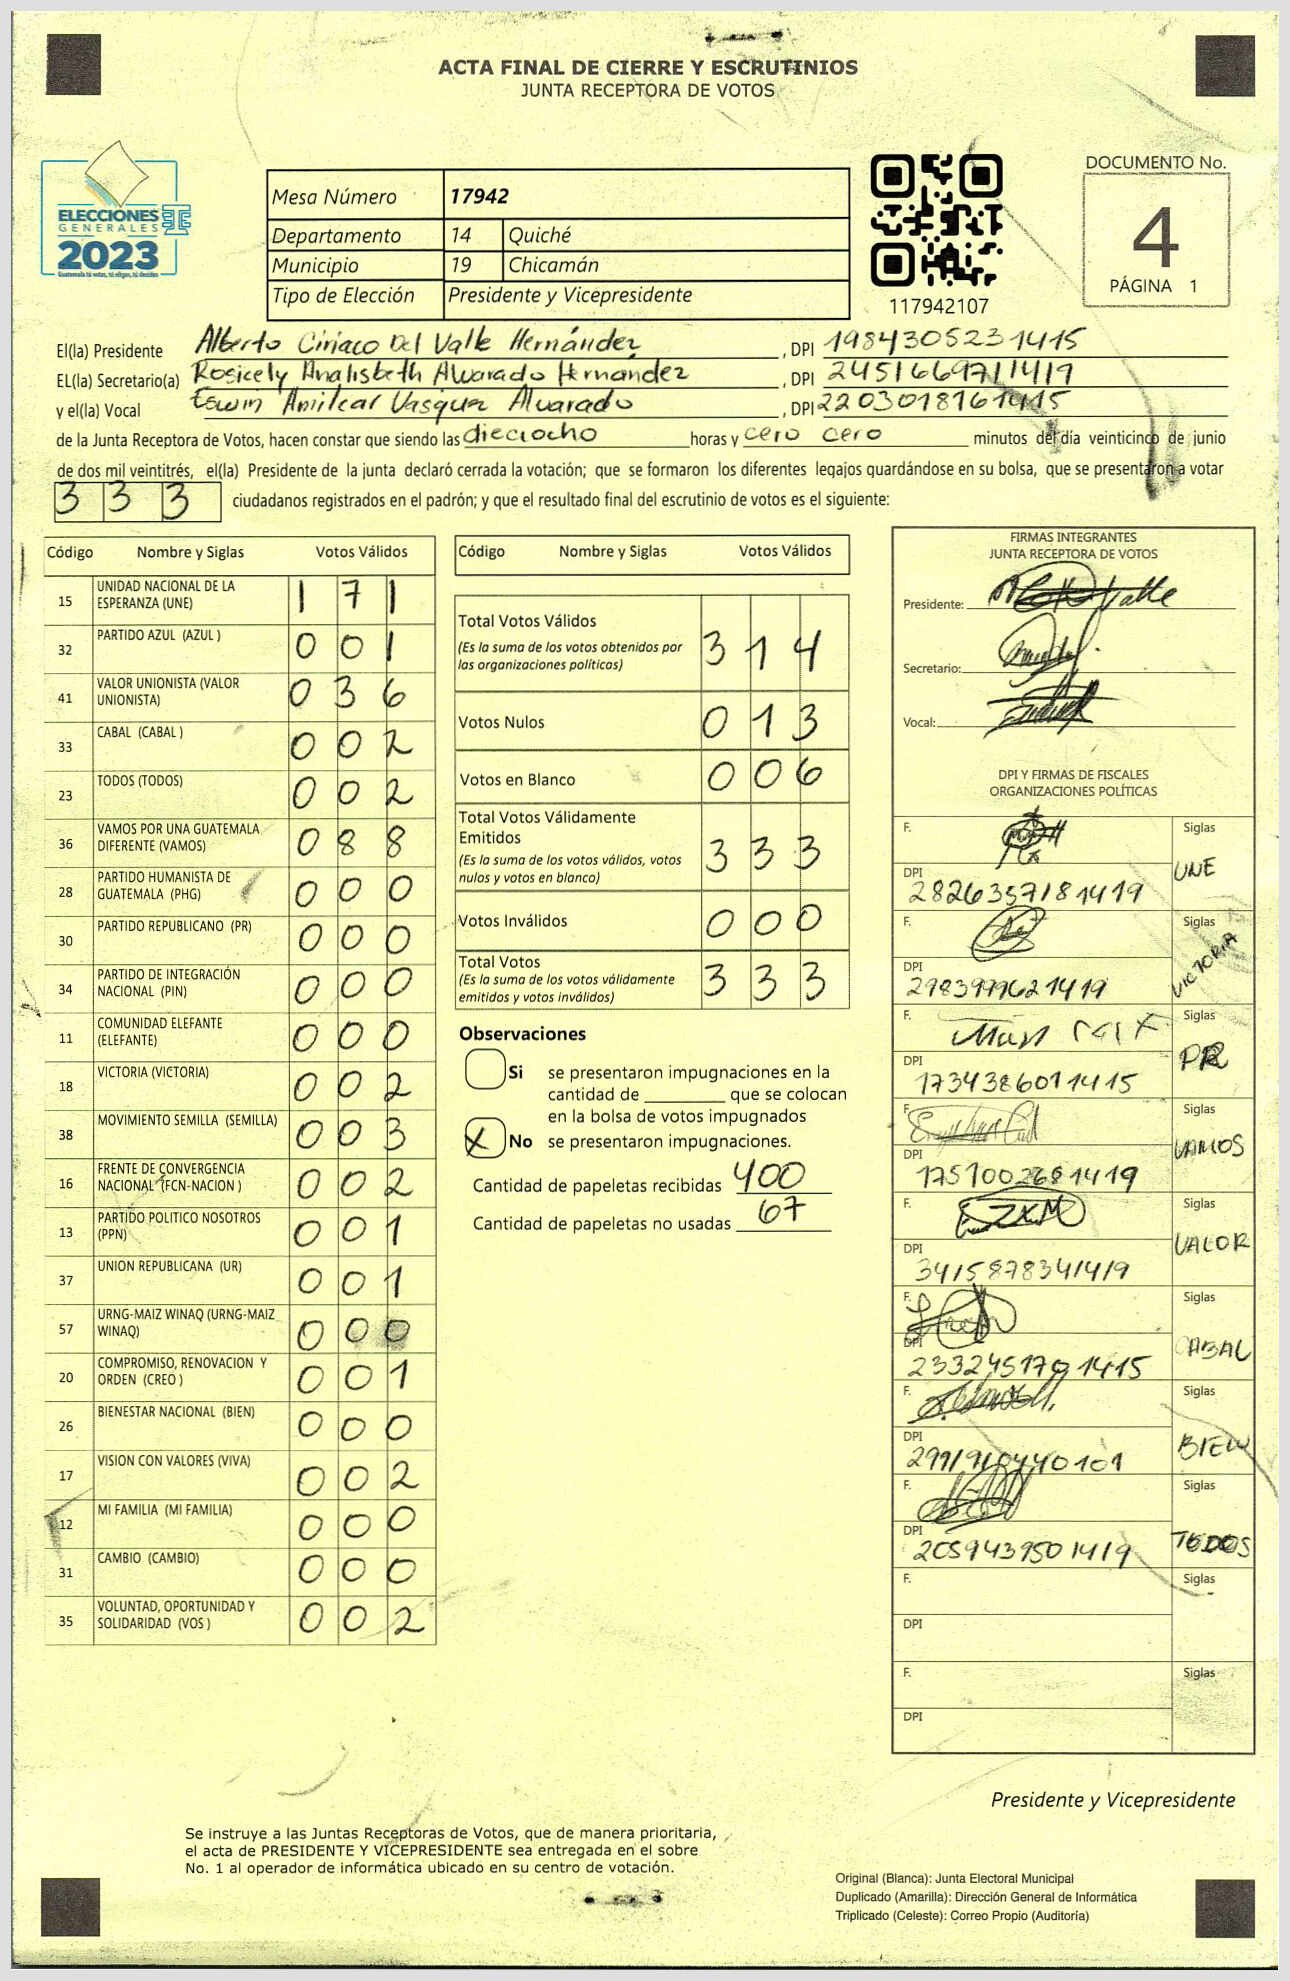 ACTA FINAL DE CIERRE Y ESCRUTINIOS
JUNTA RECEPTORA DE VOTOS
ELECCIONES
GENERALES
2023
Guatemala tú votas, tú eliges, tú decides
Mesa Número 17942
Departamento 14 Quiché
Municipio 19 Chicamán
Tipo de Elección Presidente y Vicepresidente
117942107
DOCUMENTO No.
4
PÁGINA 1
El(la) Presidente Alberto Ciriaco Del Valle Hernández, DPI 1984305231415
EL(la) Secretario(a) Rosicely Analisbeth Alvarado Hernandez, DPI 2451669711419
y el(la) Vocal Eswin Amilcar Vasquez Alvarado, DPI 2203018161415
de la Junta Receptora de Votos, hacen constar que siendo las dieciocho horas y cero cero minutos del día veinticinco de junio
de dos mil veintitrés, el(la) Presidente de la junta declaró cerrada la votación; que se formaron los diferentes legajos guardándose en su bolsa, que se presentaron a votar
333 ciudadanos registrados en el padrón; y que el resultado final del escrutinio de votos es el siguiente:
Código Nombre y Siglas Votos Válidos
15 UNIDAD NACIONAL DE LA ESPERANZA (UNE) 171
32 PARTIDO AZUL (AZUL ) 001
41 VALOR UNIONISTA (VALOR UNIONISTA) 036
33 CABAL (CABAL ) 002
23 TODOS (TODOS) 002
36 VAMOS POR UNA GUATEMALA DIFERENTE (VAMOS) 088
28 PARTIDO HUMANISTA DE GUATEMALA (PHG) 000
30 PARTIDO REPUBLICANO (PR) 000
34 PARTIDO DE INTEGRACIÓN NACIONAL (PIN) 000
11 COMUNIDAD ELEFANTE (ELEFANTE) 000
18 VICTORIA (VICTORIA) 002
38 MOVIMIENTO SEMILLA (SEMILLA) 003
16 FRENTE DE CONVERGENCIA NACIONAL (FCN-NACION ) 002
13 PARTIDO POLITICO NOSOTROS (PPN) 001
37 UNION REPUBLICANA (UR) 001
57 URNG-MAIZ WINAQ (URNG-MAIZ WINAQ) 000
20 COMPROMISO, RENOVACION Y ORDEN (CREO ) 001
26 BIENESTAR NACIONAL (BIEN) 000
17 VISION CON VALORES (VIVA) 002
12 MI FAMILIA (MI FAMILIA) 000
31 CAMBIO (CAMBIO) 000
35 VOLUNTAD, OPORTUNIDAD Y SOLIDARIDAD (VOS ) 002
Código Nombre y Siglas Votos Válidos
Total Votos Válidos 314
(Es la suma de los votos obtenidos por
las organizaciones políticas)
Votos Nulos 013
Votos en Blanco 006
Total Votos Válidamente
Emitidos 333
(Es la suma de los votos válidos, votos
nulos y votos en blanco)
Votos Inválidos 000
Total Votos 333
(Es la suma de los votos válidamente
emitidos y votos inválidos)
Observaciones
Si se presentaron impugnaciones en la
cantidad de ________ que se colocan
en la bolsa de votos impugnados
X No se presentaron impugnaciones.
Cantidad de papeletas recibidas 400
Cantidad de papeletas no usadas 67
FIRMAS INTEGRANTES
JUNTA RECEPTORA DE VOTOS
Presidente:
Secretario:
Vocal:
DPI Y FIRMAS DE FISCALES
ORGANIZACIONES POLÍTICAS
F. Siglas UNE
DPI 2826357181419
F. Siglas VICTORIA
DPI
F. Siglas PR
DPI 1734386011415
F. Siglas VAMOS
DPI 1751002681419
F. Siglas VALOR
DPI 3415878341419
F. Siglas CABAL
DPI 2332451701415
F. Siglas BIEN
DPI
F. Siglas TODOS
DPI 2059439501419
F. Siglas
DPI
F. Siglas
DPI
Presidente y Vicepresidente
Se instruye a las Juntas Receptoras de Votos, que de manera prioritaria,
el acta de PRESIDENTE Y VICEPRESIDENTE sea entregada en el sobre
No. 1 al operador de informática ubicado en su centro de votación.
Original (Blanca): Junta Electoral Municipal
Duplicado (Amarilla): Dirección General de Informática
Triplicado (Celeste): Correo Propio (Auditoría)